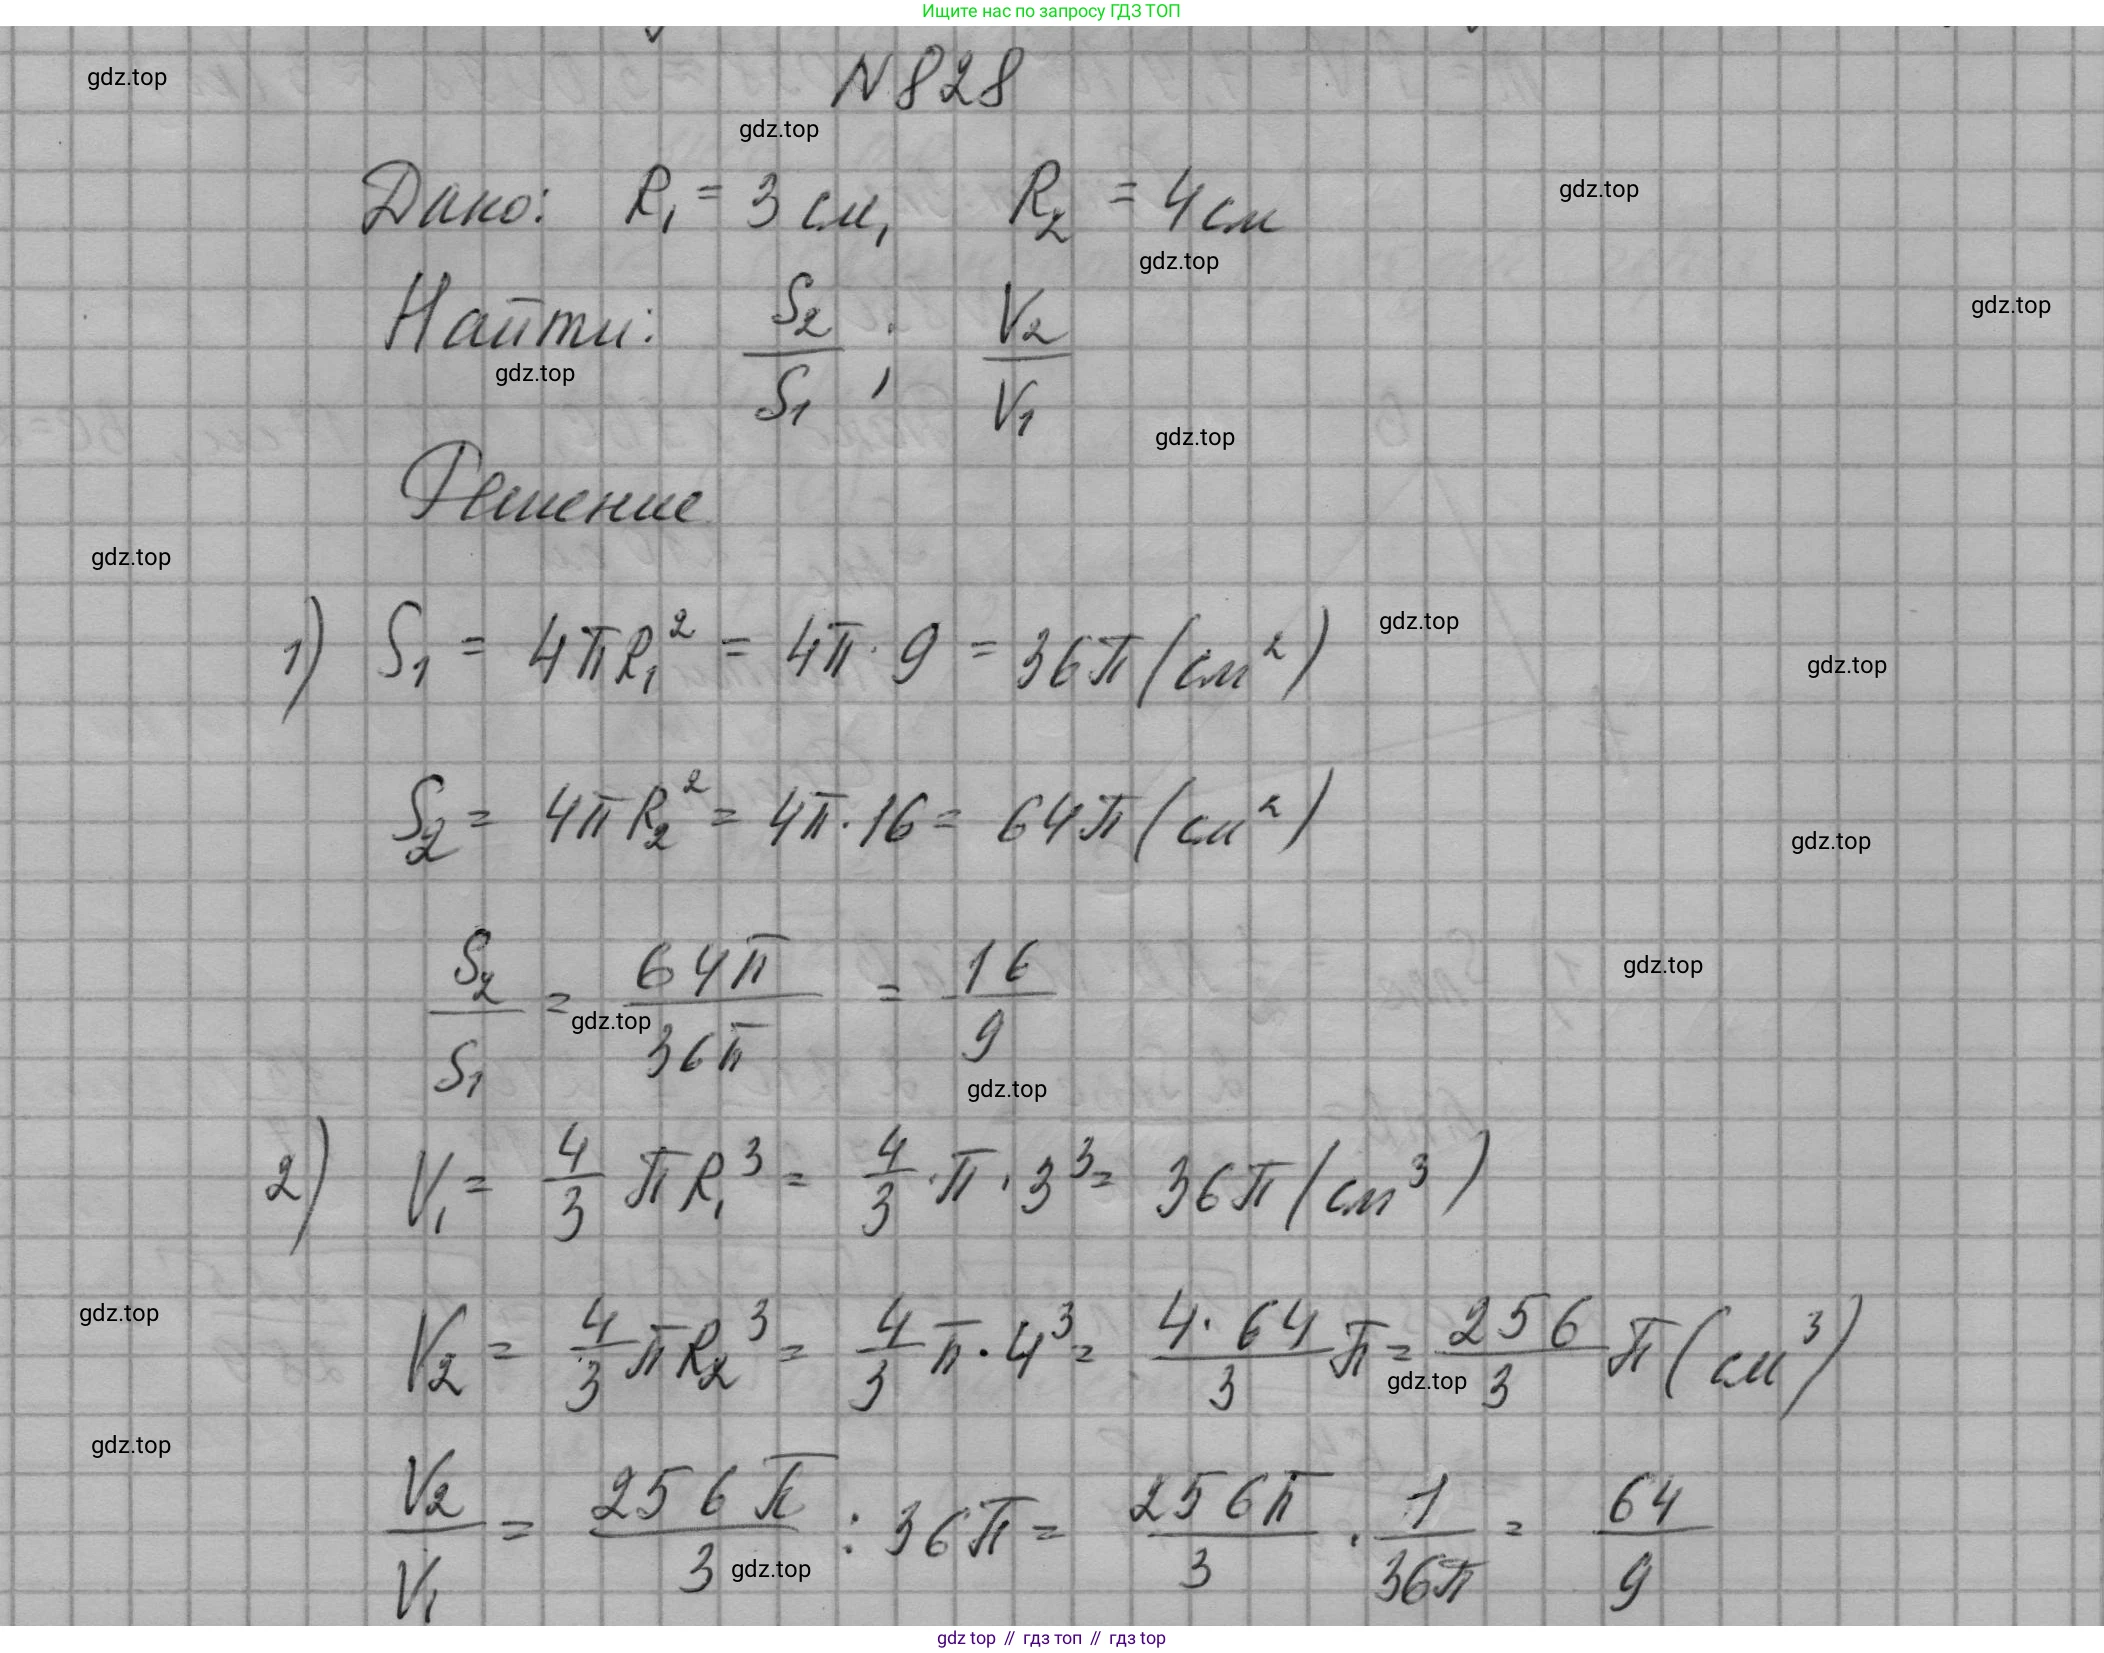 Ищите нас по запросу ГДЗ ТОП
gdz.top
N828
gdz.top
Дано: R₁ = 3 см, R₂ = 4 см
gdz.top
gdz.top
Найти: S₂/S₁ ; V₂/V₁
gdz.top
gdz.top
gdz.top
Решение
gdz.top
1) S₁ = 4πR₁² = 4π · 9 = 36π (см²)
gdz.top
gdz.top
S₂ = 4πR₂² = 4π · 16 = 64π (см²)
gdz.top
S₂/S₁ = 64π/36π = 16/9
gdz.top
gdz.top
gdz.top
2) V₁ = 4/3 πR₁³ = 4/3 · π · 3³ = 36π (см³)
gdz.top
V₂ = 4/3 πR₂³ = 4/3 π · 4³ = 4·64/3 π = 256/3 π (см³)
gdz.top
gdz.top
V₂/V₁ = 256π/3 : 36π = 256π/3 · 1/36π = 64/9
gdz.top
gdz top // гдз топ // гдз top